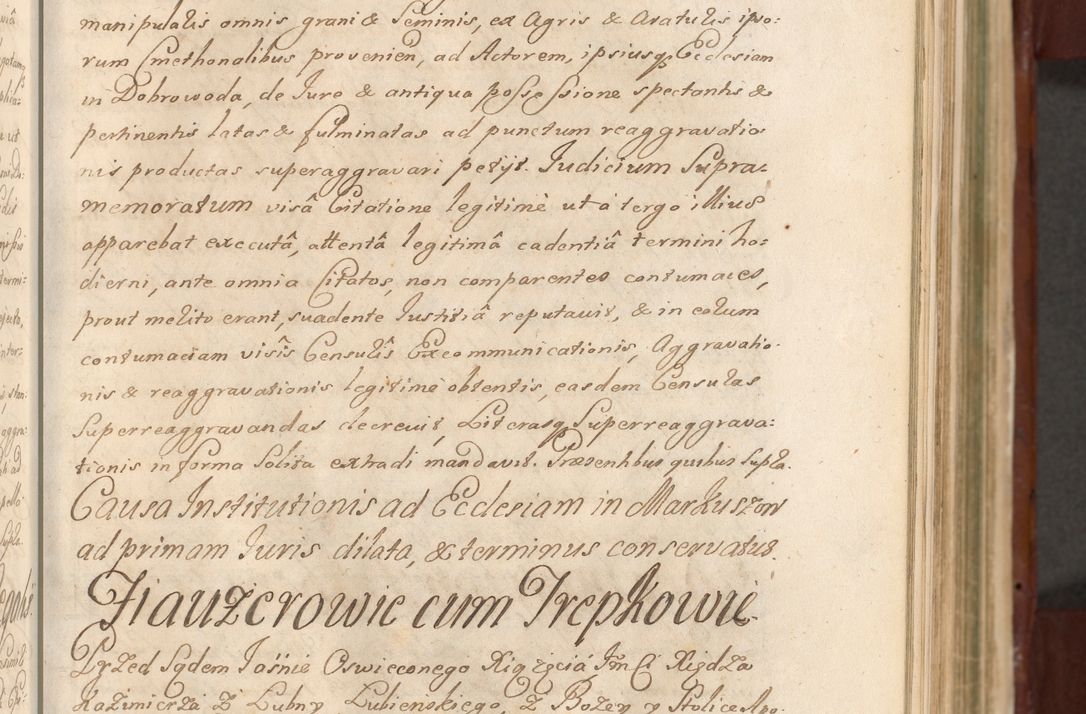 manipulatis omnis grani & seminis, ex Agris & Aratulis ipso:
rum Cmethonalibus provenien, ad Actorem, ipsiusq Ecclesiam
in Dobrowoda, de Iure & antiqua possessione spectantis &
pertinentis latas & fulminatas ad punctum reaggravatio
nis productas superaggravari petijt. Iudicium Supra:
memoratum visâ Citatione legitimè ut à tergo illius
apparebat executâ, attentâ legitimâ cadentiâ termini ho:
dierni, ante omnia Citatos, non comparentes contumaces,
prout merito erant, suadente Iustitiâ reputavit, & in eorum
contumaciam visîs Censurîs Excommunicationis, Aggravatio
nis & reaggravationis legitimè obtentis, easdem Censuras
Superreaggravandas decrevit, Literasq Superreaggrava:
tionis in forma solita extradi mandavit. Præsentibus quibus supra.
Causa Institutionis ad Ecclesiam in Markuszow
ad primam Iuris dilata, & terminus conservatus.
Fiauzerowie cum Trepkowie.
Przed Sądem Jaśnie Oswieconego Xiązęcia Jm Ci Xiędza
Kaźimierza Z Lubny Lubienskiego, Z Bozey y Stolice Apo